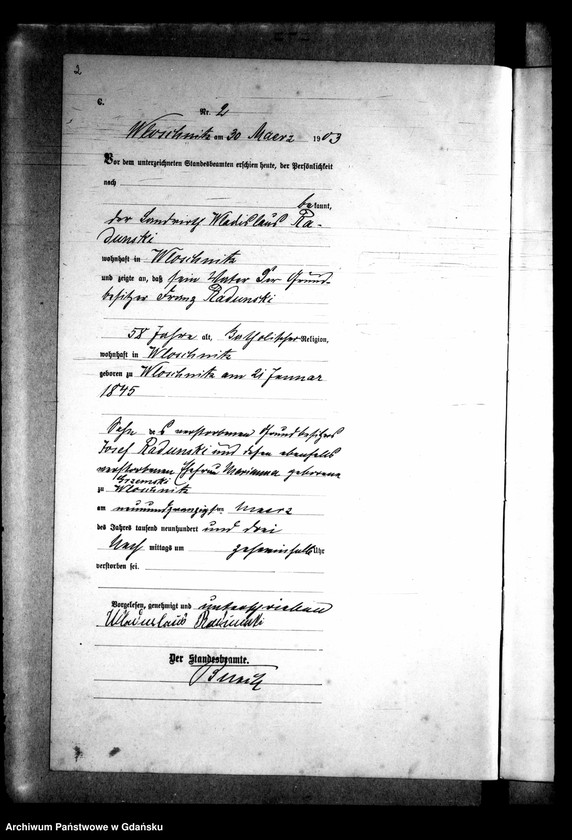 2
C.
Nr. 2
Wloschnitz am 30 Maerz 1903
Vor dem unterzeichneten Standesbeamten erschien heute, der Persönlichkeit
nach
bekannt,
der Landwirth Wladislaus Ra-
dunski
wohnhaft in Wloschnitz
und zeigte an, daß sein Vater der Grund-
besitzer Franz Radunski
58 Jahre alt, katholischer Religion,
wohnhaft in Wloschnitz
geboren zu Wloschnitz am 21 Januar
1845
Sohn des verstorbenen Grundbesitzers
Josef Radunski und dessen ebenfalls
verstorbenen Ehefrau Marianna geborene
zu Wloschnitz
am neunundzwanzigsten Maerz
des Jahres tausend neunhundert und drei
Nach mittags um Uhr
verstorben sei.
Vorgelesen, genehmigt und unterschrieben
Radunski
Der Standesbeamte.
Archiwum Państwowe w Gdańsku